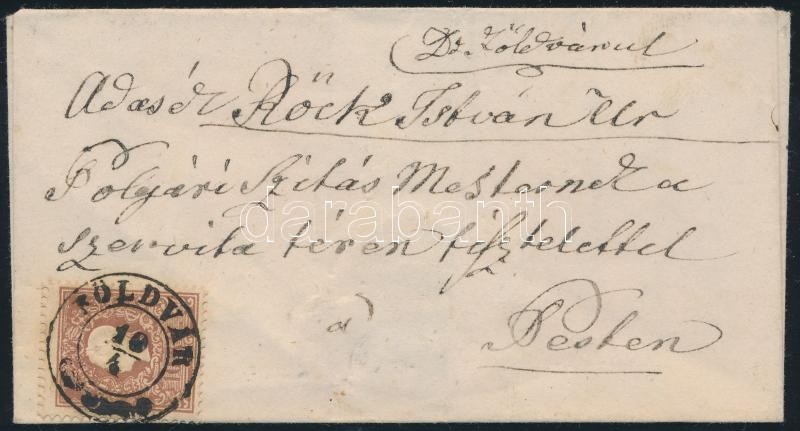 D. Földvárul
Adassék Röck István Ur
Polgári Szitás Mesternek a
szervita téren tisztelettel
a
Pesten
FÖLDVÁR
19
4
darabanth